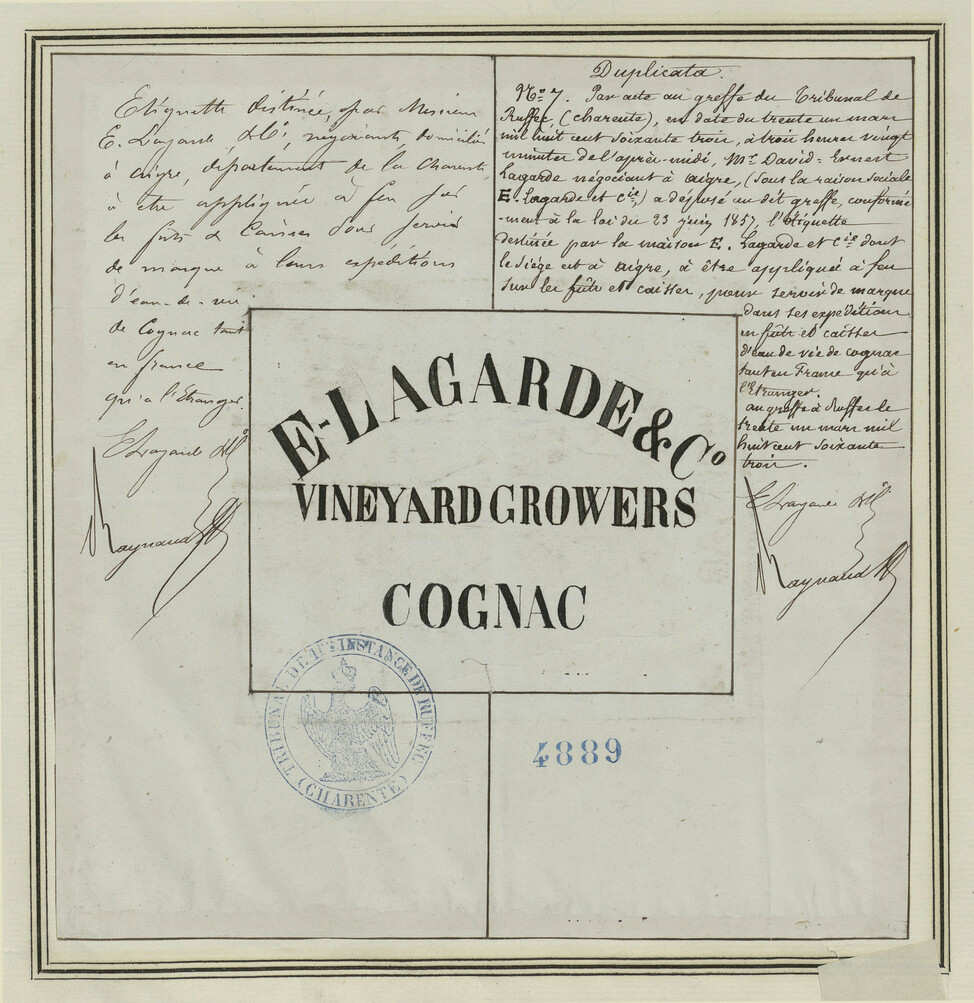 Etiquette destinée, par Messieurs
E. Lagarde & Cie, negociants, domiciliés
à aigre, département de la Charente,
à être appliquée à feu sur
les fûts & Caisses pour servir
de marque à leurs expéditions
d'eau-de-vie
de Cognac tant
en france
qu'a l'Etranger.
E Lagarde & Cie
Raynaud
Duplicata.
No. 7. Par acte au greffe du Tribunal de
Ruffec, (charente), en date du trente un mars
mil huit cent soixante trois, à trois heures vingt
minutes de l'après-midi, Mr. David-Ernest
Lagarde négociant à aigre, (sous la raison sociale
E. Lagarde et Cie) a déposé au dit greffe, conformé
-ment à la loi du 23 juin 1857, l'étiquette
destinée par la maison E. Lagarde et Cie dont
le siège est à aigre, à être appliquée à feu
sur les fûts et caisses, pour servir de marque
dans ses expéditions
en fûts et caisses
d'eau de vie de cognac
tant en France qu'à
l'Etranger.
au greffe à Ruffec le
trente un mars mil
huit cent soixante
trois.
E Lagarde & Cie
Raynaud
E-LAGARDE & Co
VINEYARD GROWERS
COGNAC
TRIBUNAL DE 1re INSTANCE DE RUFFEC
(CHARENTE)
4889